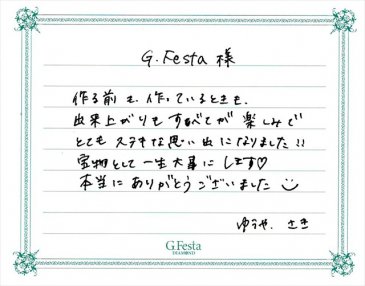 G.Festa 様
作る前も、作っているときも、
出来上がりもすべてが楽しみで
とてもステキな思い出になりました!!
宝物として一生大事にします♡
本当にありがとうございました
ゆうや、さき
G.Festa
DIAMOND